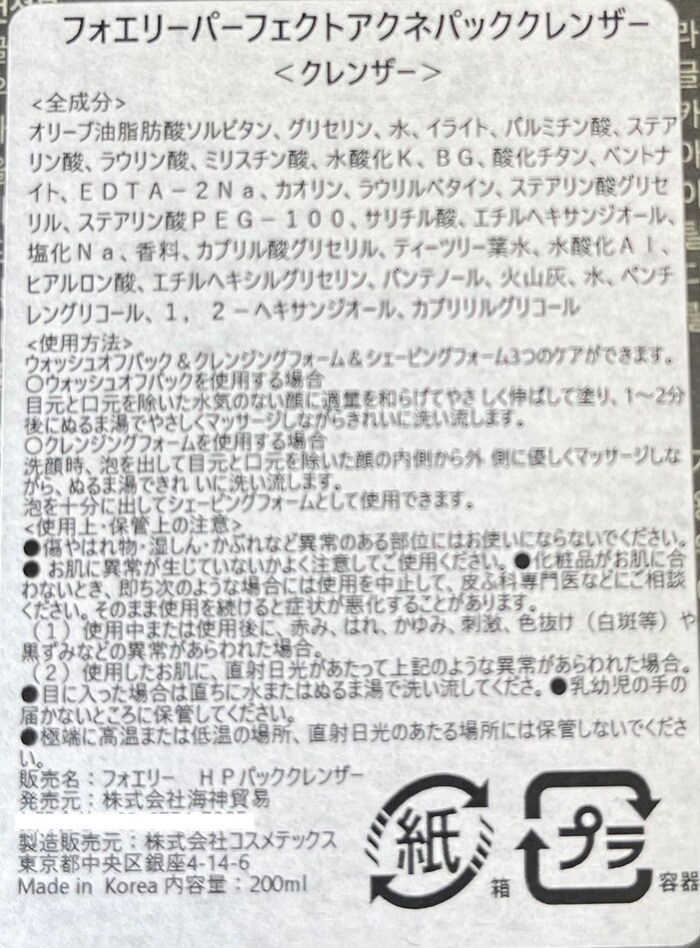 フォエリーパーフェクトアクネパッククレンザー
＜クレンザー＞
<全成分>
オリーブ油脂肪酸ソルビタン、グリセリン、水、イライト、パルミチン酸、ステア
リン酸、ラウリン酸、ミリスチン酸、水酸化Ｋ、ＢＧ、酸化チタン、ベントナ
イト、ＥＤＴＡ－２Ｎａ、カオリン、ラウリルベタイン、ステアリン酸グリセ
リル、ステアリン酸ＰＥＧ－１００、サリチル酸、エチルヘキサンジオール、
塩化Ｎａ、香料、カプリル酸グリセリル、ティーツリー葉水、水酸化Ａｌ、
ヒアルロン酸、エチルヘキシルグリセリン、パンテノール、火山灰、水、ペンチ
レングリコール、１，２－ヘキサンジオール、カプリリルグリコール
<使用方法>
ウォッシュオフパック＆クレンジングフォーム＆シェービングフォーム3つのケアができます。
○ウォッシュオフパックを使用する場合
目元と口元を除いた水気のない顔に適量を和らげてやさ しく伸ばして塗り、1～2分
後にぬるま湯でやさしくマッサージしながらきれいに洗い流します。
○クレンジングフォームを使用する場合
洗顔時、泡を出して目元と口元を除いた顔の内側から外 側に優しくマッサージしな
がら、ぬるま湯できれ いに洗い流します。
泡を十分に出してシェービングフォームとして使用できます。
<使用上・保管上の注意>
●傷やはれ物・湿しん・かぶれなど異常のある部位にはお使いにならないでください。
● お肌に異常が生じていないかよく注意してご使用ください。●化粧品がお肌に合
わないとき、即ち次のような場合には使用を中止して、皮ふ科専門医などにご相談
ください。そのまま使用を続けると症状が悪化することがあります。
（１）使用中または使用後に、赤み、はれ、かゆみ、刺激、色抜け（白斑等）や
黒ずみなどの異常があらわれた場合。
（２）使用したお肌に、直射日光があたって上記のような異常があらわれた場合。
●目に入った場合は直ちに水またはぬるま湯で洗い流してくださ。●乳幼児の手の
届かないところに保管してください。
●極端に高温または低温の場所、直射日光のあたる場所には保管しないでくださ
い。
販売名：フォエリー　ＨＰパッククレンザー
発売元：株式会社海神貿易
製造販売元：株式会社コスメテックス
東京都中央区銀座4-14-6
Made in Korea 内容量：200ml
紙
箱
プラ
容器